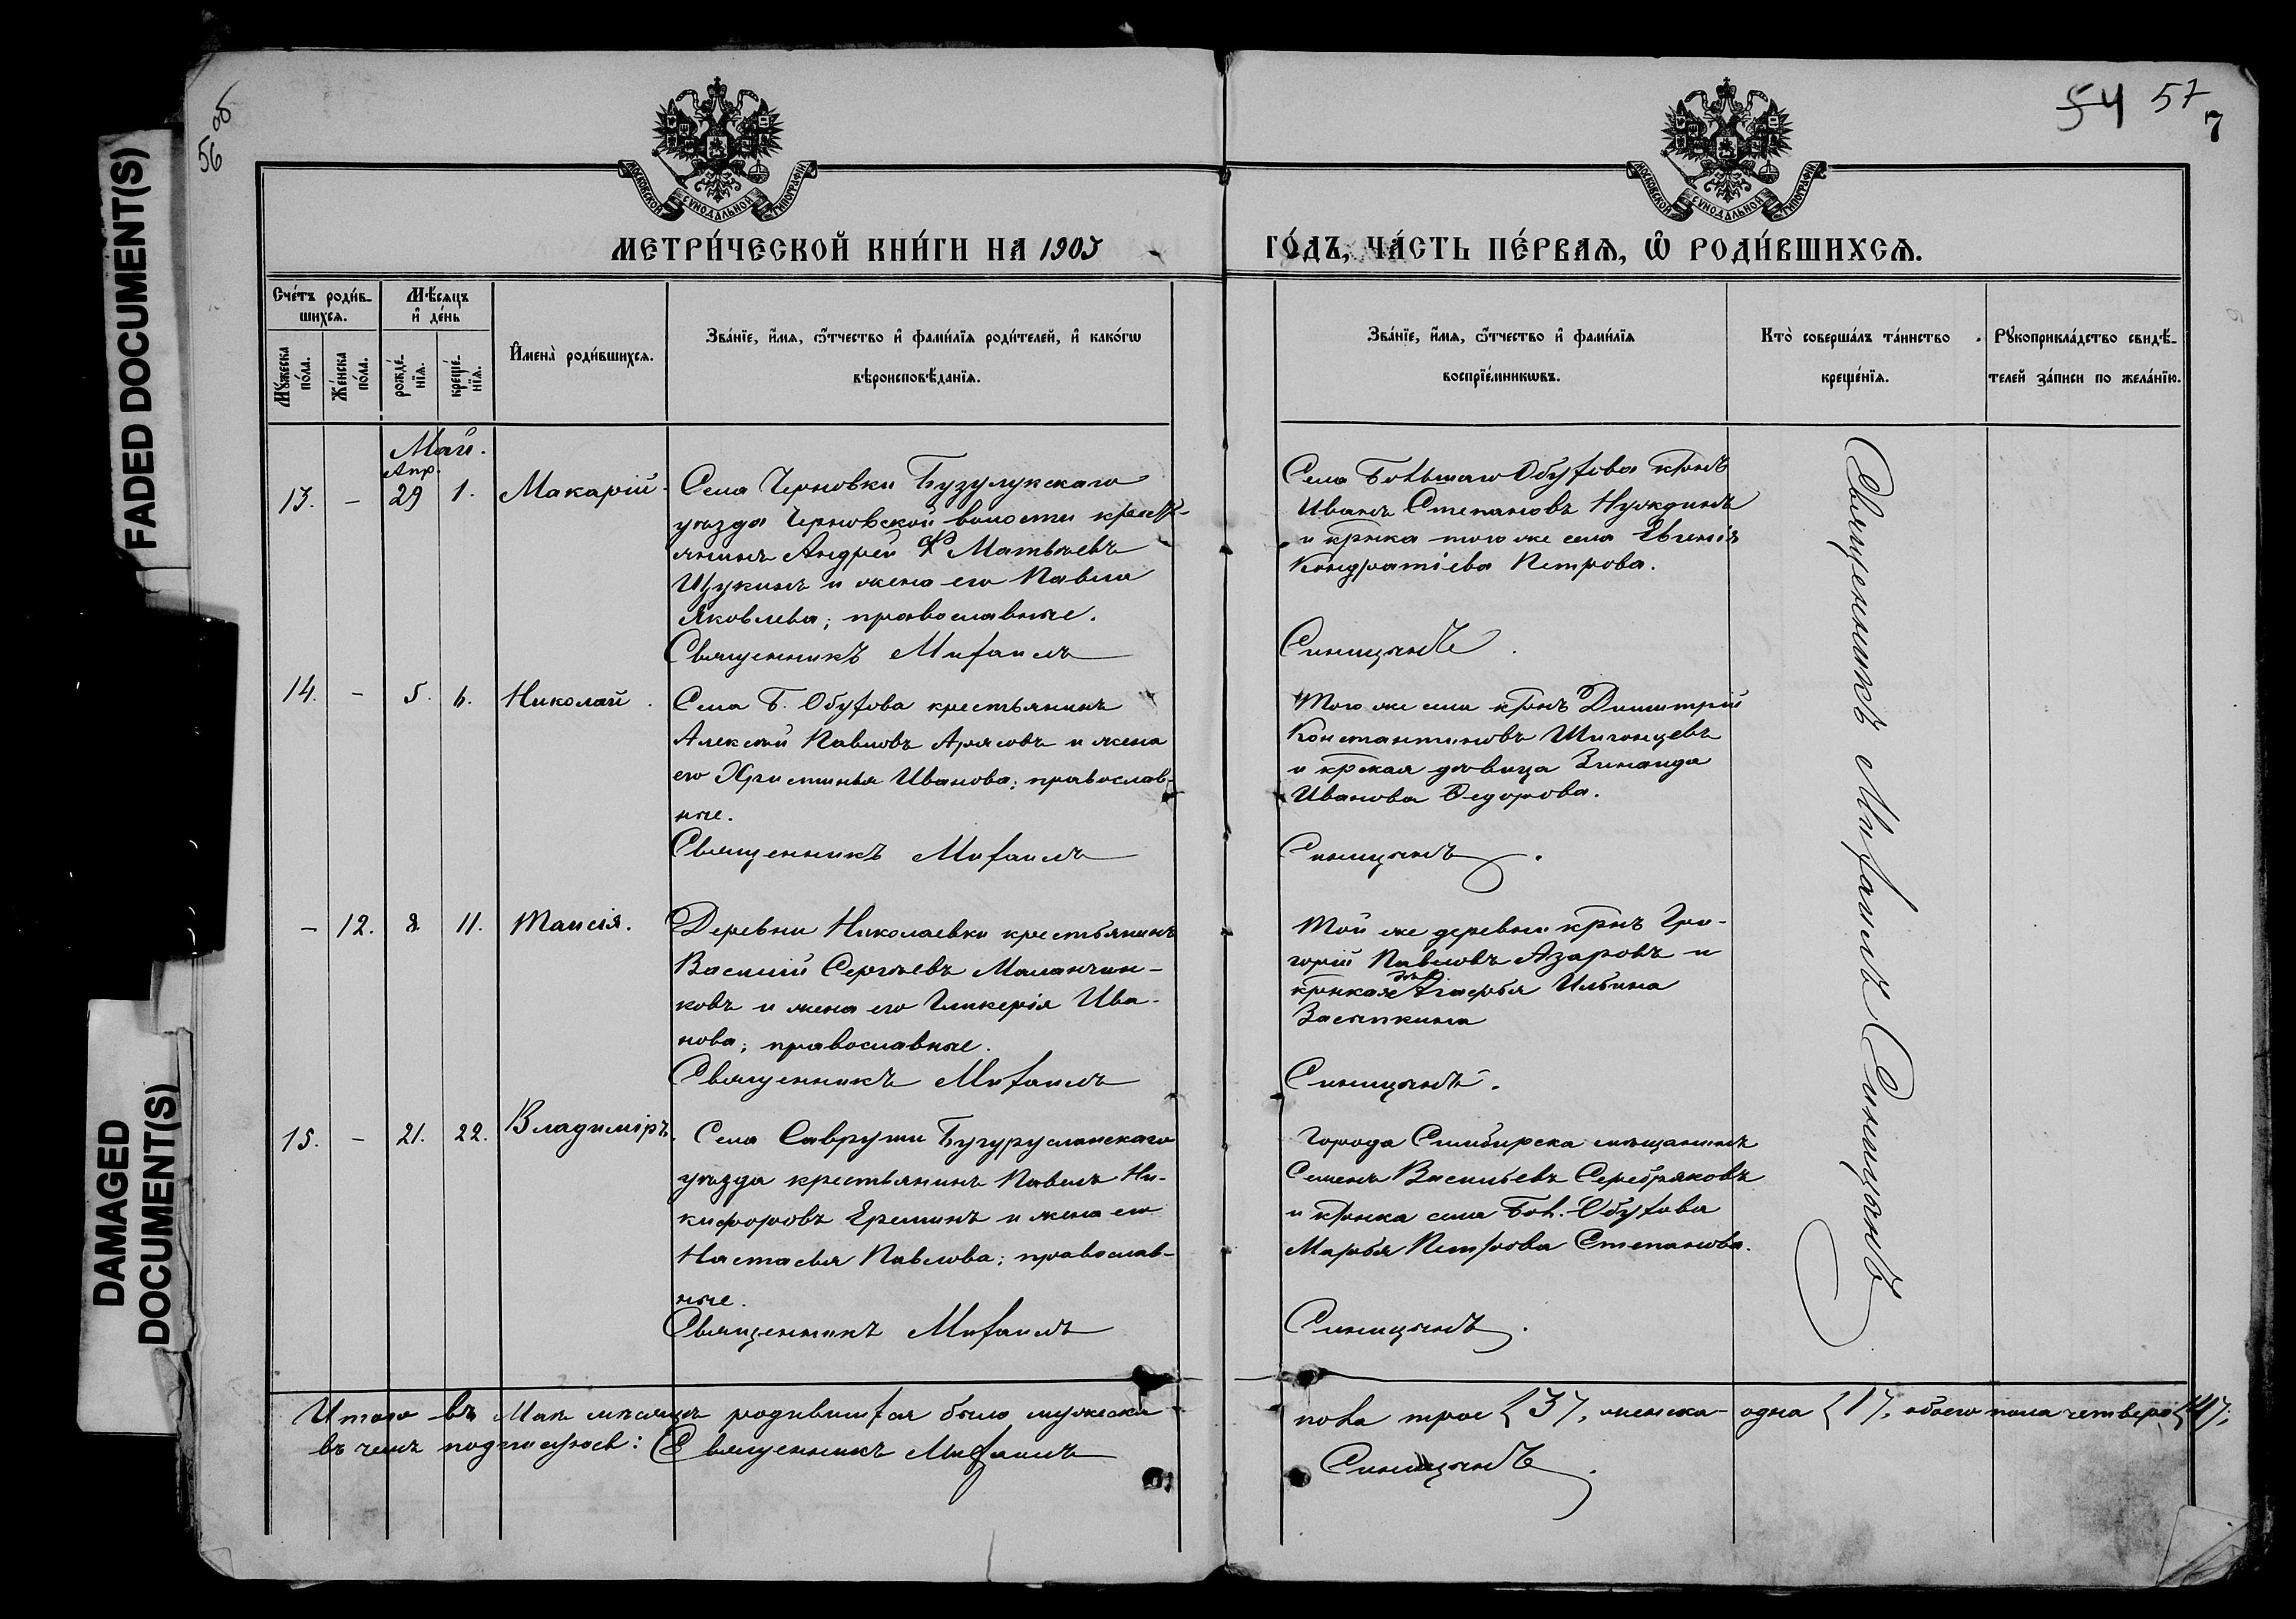 FADED DOCUMENT(S)
DAMAGED
DOCUMENT(S)
56 об
54 57
7
МОСКОВСКОЙ СѴНОДАЛЬНОЙ ТИПОГРАФІИ
МОСКОВСКОЙ СѴНОДАЛЬНОЙ ТИПОГРАФІИ
МЕТРИ́ЧЕСКОЙ КНИ́ГИ НА 1905
ГО́ДЪ, ЧА́СТЬ ПЕ́РВАѦ, Ѡ҆ РОДИ́ВШИХСѦ.
Сче́тъ роди́в-
шихсѧ.
Мꙋ́жеска по́ла.
Же́нска по́ла.
Мѣ́сѧцъ
и҆ де́нь
рожде́-
нїѧ.
креще́-
нїѧ.
И҆мена̀ роди́вшихсѧ.
Зва́нїе, и҆́мѧ, ѻ҆́тчество и҆ фами́лїѧ роди́телей, и҆ како́гѡ
вѣроисповѣ́данїѧ.
Зва́нїе, и҆́мѧ, ѻ҆́тчество и҆ фами́лїѧ
воспрїе́мникѡвъ.
Кто̀ соверша́лъ та́инство
креще́нїѧ.
Рꙋкоприкла́дство свидѣ́-
телей за́писи по жела́нїю.
Май.
Апр.
13. - 29 1. Макарій.
Села Черновки Бузулукскаго
уѣзда Черновской волости кресть-
янинъ Андрей Матвѣевъ
Щукинъ и жена его Павла
Яковлева; православные.
Священникъ Михаилъ
Села Большаго Обухова кр-нъ
Иванъ Степановъ Нуждинъ
и кр-нка того же села Евгенія
Кондратіева Петрова.
Синицынъ.
14. - 5. 6. Николай.
Села Б. Обухова крестьянинъ
Алексѣй Павловъ Арясовъ и жена
его Христинья Иванова; православ-
ные.
Священникъ Михаилъ
Того же села кр-нъ Димитрій
Константиновъ Шигонцевъ
и кр-ская дѣвица Зинаида
Иванова Ѳедорова.
Синицынъ.
- 12. 8. 11. Таисія.
Деревни Николаевки крестьянинъ
Василій Сергѣевъ Маланчин-
ковъ и жена его Гликерія Ива-
нова; православные.
Священникъ Михаилъ
Той же деревни кр-нъ Гри-
горій Павловъ Азаровъ и
кр-нская Агафья Ильина
Засыпкина
Синицынъ.
15. - 21. 22. Владиміръ.
Села Савруши Бугурусланскаго
уѣзда крестьянинъ Павелъ Ни-
кифоровъ Ереминъ и жена его
Настасья Павлова; православ-
ные.
Священникъ Михаилъ
Города Симбирска мѣщанинъ
Семенъ Васильевъ Серебряковъ
и кр-нка села Бол. Обухова
Марѳья Петрова Степанова.
Синицынъ.
Священникъ Михаилъ Синицынъ
Итого въ Маѣ мѣсяцѣ родившихся было мужеска пола трое {3}, женска - одна {1}, обоего пола четверо {4};
въ чемъ подписуюсь: Священникъ Михаилъ Синицынъ.